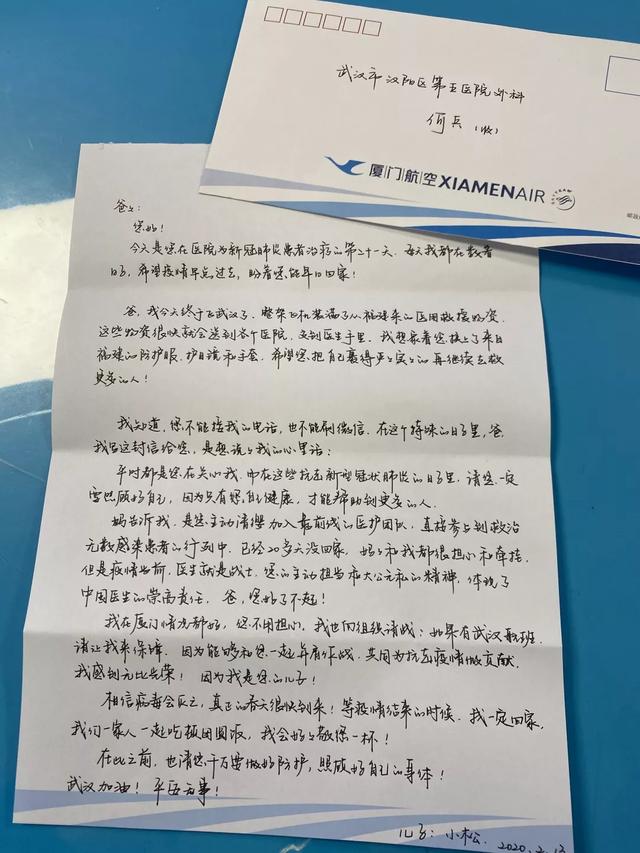 武汉市汉阳区第五医院外科
何兵（收）
厦门航空 XIAMENAIR
SKYTEAM
爸爸:
您好!
今天是您在医院为新冠肺炎患者治疗的第二十一天、每天我都在数着
日子，希望疫情早点过去，盼着您能早日回家!
爸，我今天终于飞武汉了、整架飞机装满了从福建来的医用救援物资
这些物资很快就会送到各个医院、交到医生手里、我想象着您换上了来自
福建的防护服、护目镜和手套、希望您把自己裹得严严实实的再继续去救
更多的人!
我知道，您不能接我的电话，也不能刷微信、在这个特殊的日子里，爸，
我写这封信给您，是想说说我的心里话:
平时都是您在关心我、而在这些抗击新型冠状肺炎的日子里，请您一定
要照顾好自己，因为只有您自己健康，才能帮助到更多的人、
妈告诉我、是您主动请缨加入最前线的医护团队，直接参与到救治
无数感染患者的行列中、已经20多天没回家、妈妈和我都很担心和牵挂、
但是疫情当前、医生就是战士、您的主动担当和大公无私的精神，体现了
中国医生的崇高责任、爸，您好了不起!
我在厦门情况都好，您不用担心、我也向组织请战：如果有武汉航班
请让我来保障、因为能够和您一起并肩作战、共同为抗击疫情做贡献、
我感到无比光荣! 因为我是您的儿子!
相信病毒会灭亡，真正的春天很快到来! 等疫情结束的时候、我一定回家、
我们一家人一起吃顿团圆饭，我会好好敬您一杯!
在此之前，也请您千万要做好防护，照顾好自己的身体!
武汉加油! 平安无事!
儿子: 小松、2020、2、